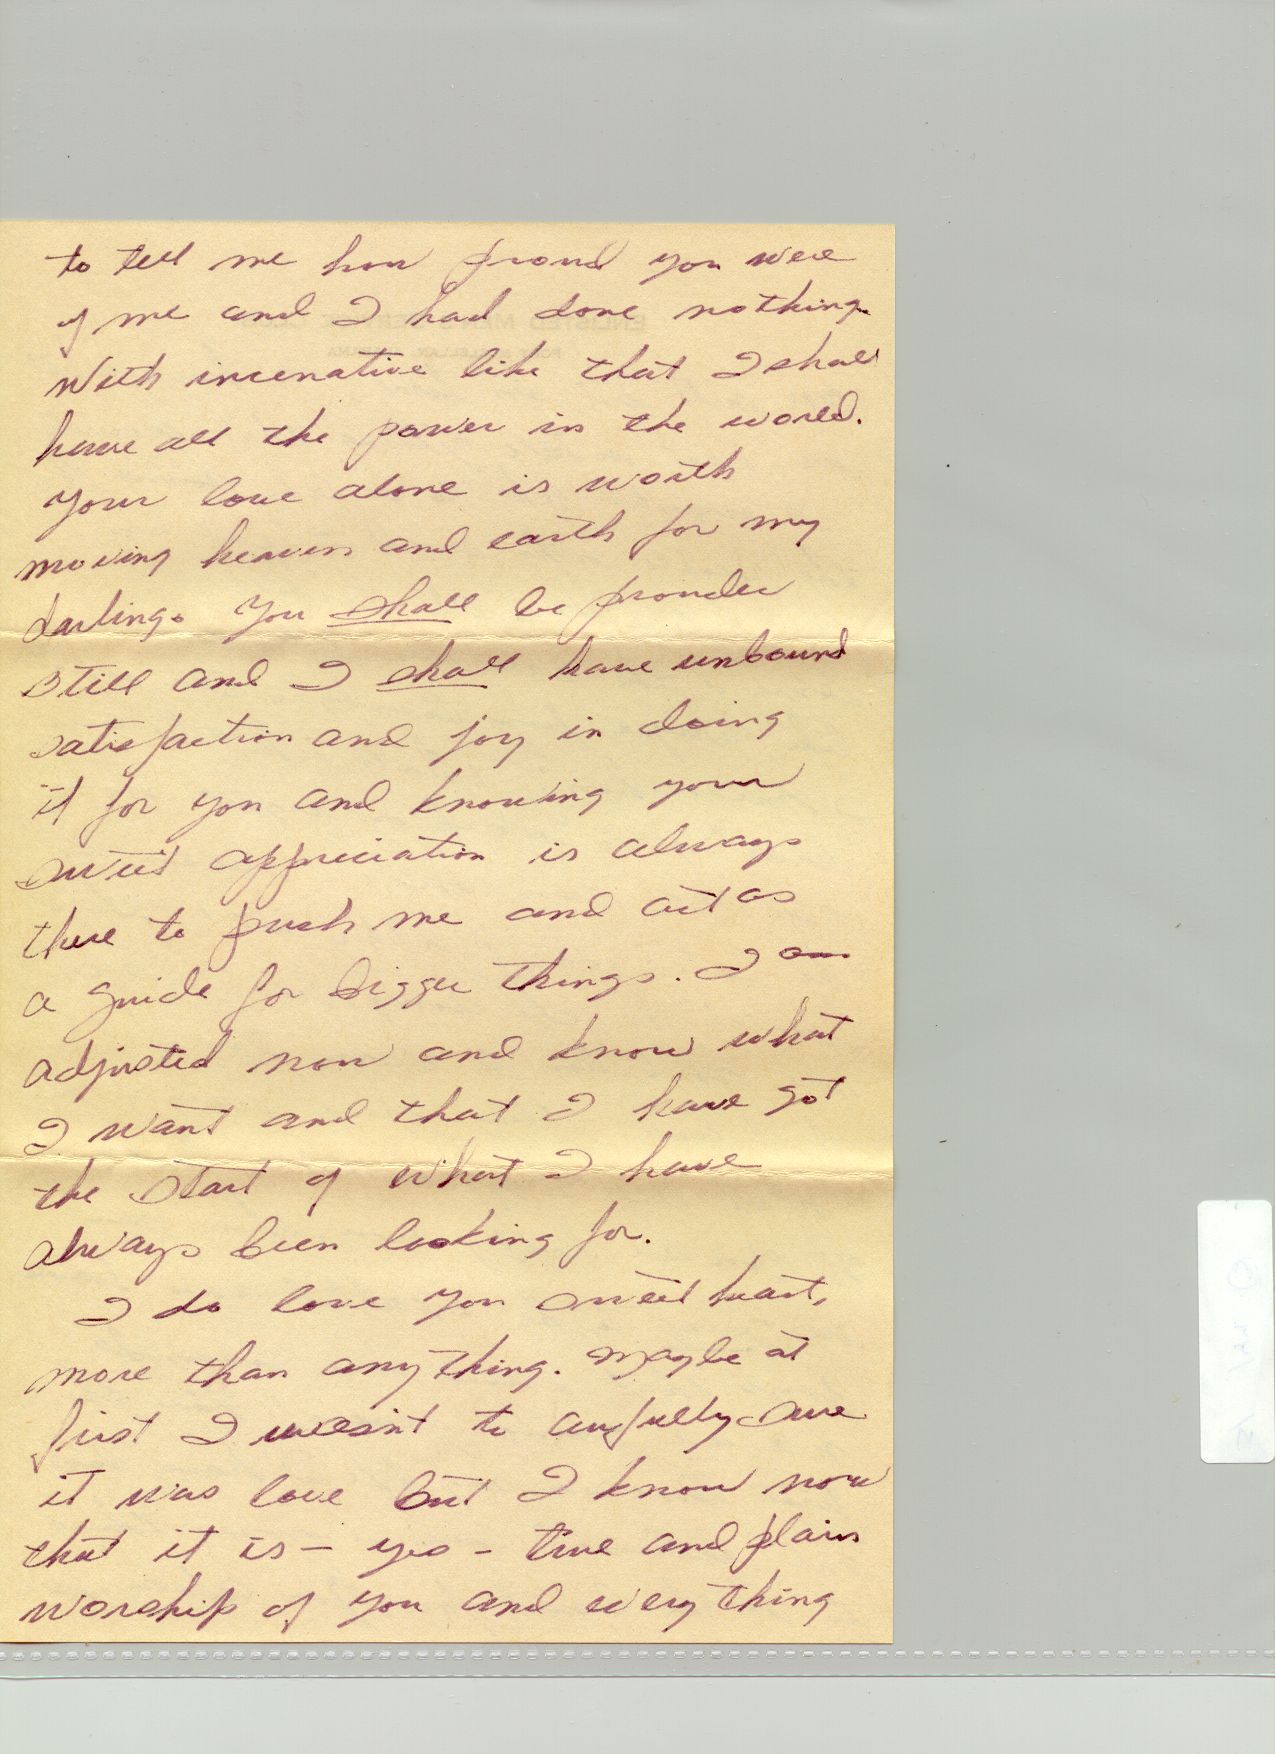 to tell me how proud you were
of me and I had done nothing.
With incenative like that I shall
have all the power in the world.
Your love alone is worth
moving heaven and earth for my
darling. You shall be prouder
still and I shall have unbound
satisfaction and joy in doing
it for you and knowing your
sweet appreciation is always
there to push me and act as
a guide for bigger things. I am
adjusted now and know what
I want and that I have got
the start of what I have
always been looking for.
I do love you sweet heart,
more than anything. Maybe at
first I wasn't to awfully sure
it was love but I know now
that it is - yes - true and plain
worship of you and everything
ENLISTED MEN'S